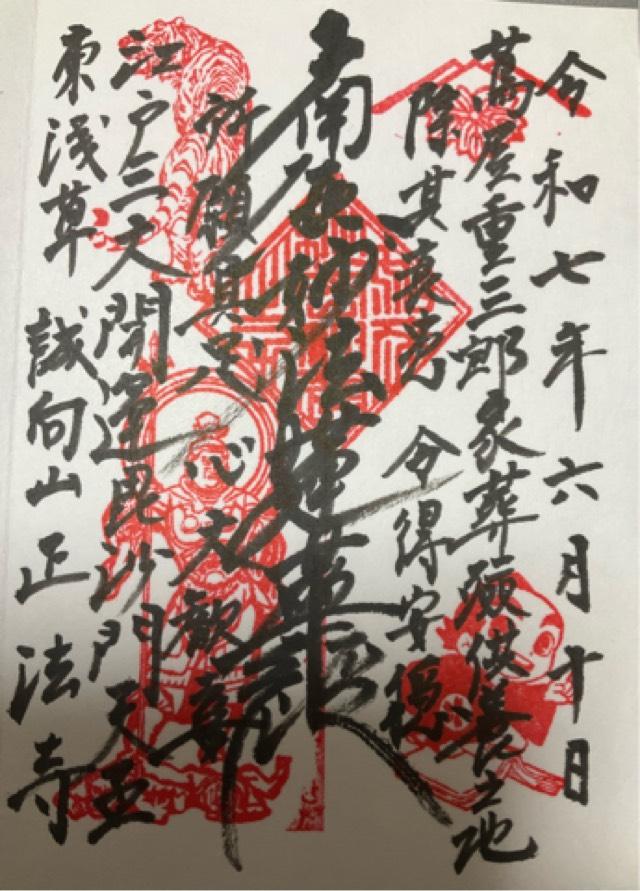 令和七年六月十日
蔦屋重三郎家葬殮供養之地
除其衰患 令得安穏
南無妙法蓮華経
所願具足 心大歓喜
江戸三大 開運毘沙門天王
東浅草 誠向山 正法寺